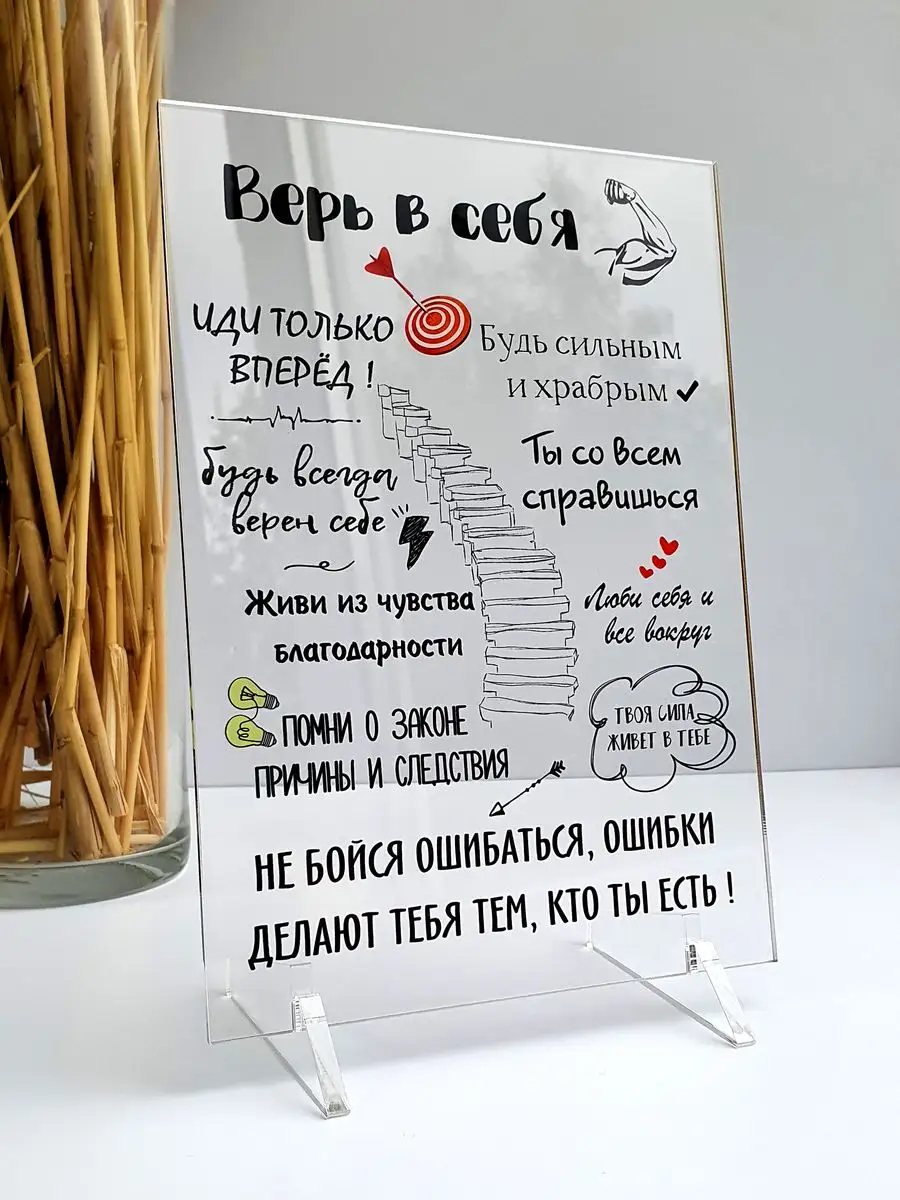 Верь в себя
иди только
вперёд !
Будь сильным
и храбрым
будь всегда
верен себе
Ты со всем
справишься
Живи из чувства
благодарности
Люби себя и
все вокруг
ПОМНИ О ЗАКОНЕ
ПРИЧИНЫ И СЛЕДСТВИЯ
ТВОЯ СИЛА
ЖИВЕТ В ТЕБЕ
НЕ БОЙСЯ ОШИБАТЬСЯ, ОШИБКИ
ДЕЛАЮТ ТЕБЯ ТЕМ, КТО ТЫ ЕСТЬ !